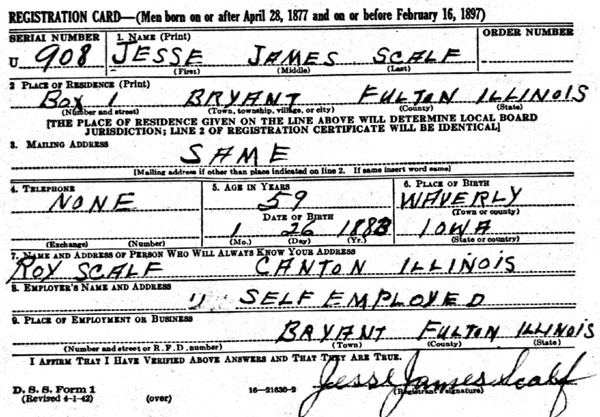 REGISTRATION CARD—(Men born on or after April 28, 1877 and on or before February 16, 1897)
SERIAL NUMBER 1. NAME (Print) ORDER NUMBER
U 908 JESSE JAMES SCALF
(First) (Middle) (Last)
2 PLACE OF RESIDENCE (Print)
BOX 1 BRYANT FULTON ILLINOIS
(Number and street) (Town, township, village, or city) (County) (State)
[THE PLACE OF RESIDENCE GIVEN ON THE LINE ABOVE WILL DETERMINE LOCAL BOARD
JURISDICTION; LINE 2 OF REGISTRATION CERTIFICATE WILL BE IDENTICAL]
3. MAILING ADDRESS
SAME
[Mailing address if other than place indicated on line 2. If same insert word same]
4. TELEPHONE 5. AGE IN YEARS 6. PLACE OF BIRTH
NONE 59 WAVERLY
DATE OF BIRTH (Town or county)
1 26 1883 IOWA
(Exchange) (Number) (Mo.) (Day) (Yr.) (State or country)
7. NAME AND ADDRESS OF PERSON WHO WILL ALWAYS KNOW YOUR ADDRESS
ROY SCALF CANTON ILLINOIS
8. EMPLOYER'S NAME AND ADDRESS
" SELF EMPLOYED
9. PLACE OF EMPLOYMENT OR BUSINESS
BRYANT FULTON ILLINOIS
(Number and street or R. F. D. number) (Town) (County) (State)
I AFFIRM THAT I HAVE VERIFIED ABOVE ANSWERS AND THAT THEY ARE TRUE.
Jesse James Scalf
D. S. S. Form 1 16—21630-2 (Registrant's signature)
(Revised 4-1-42) (over)